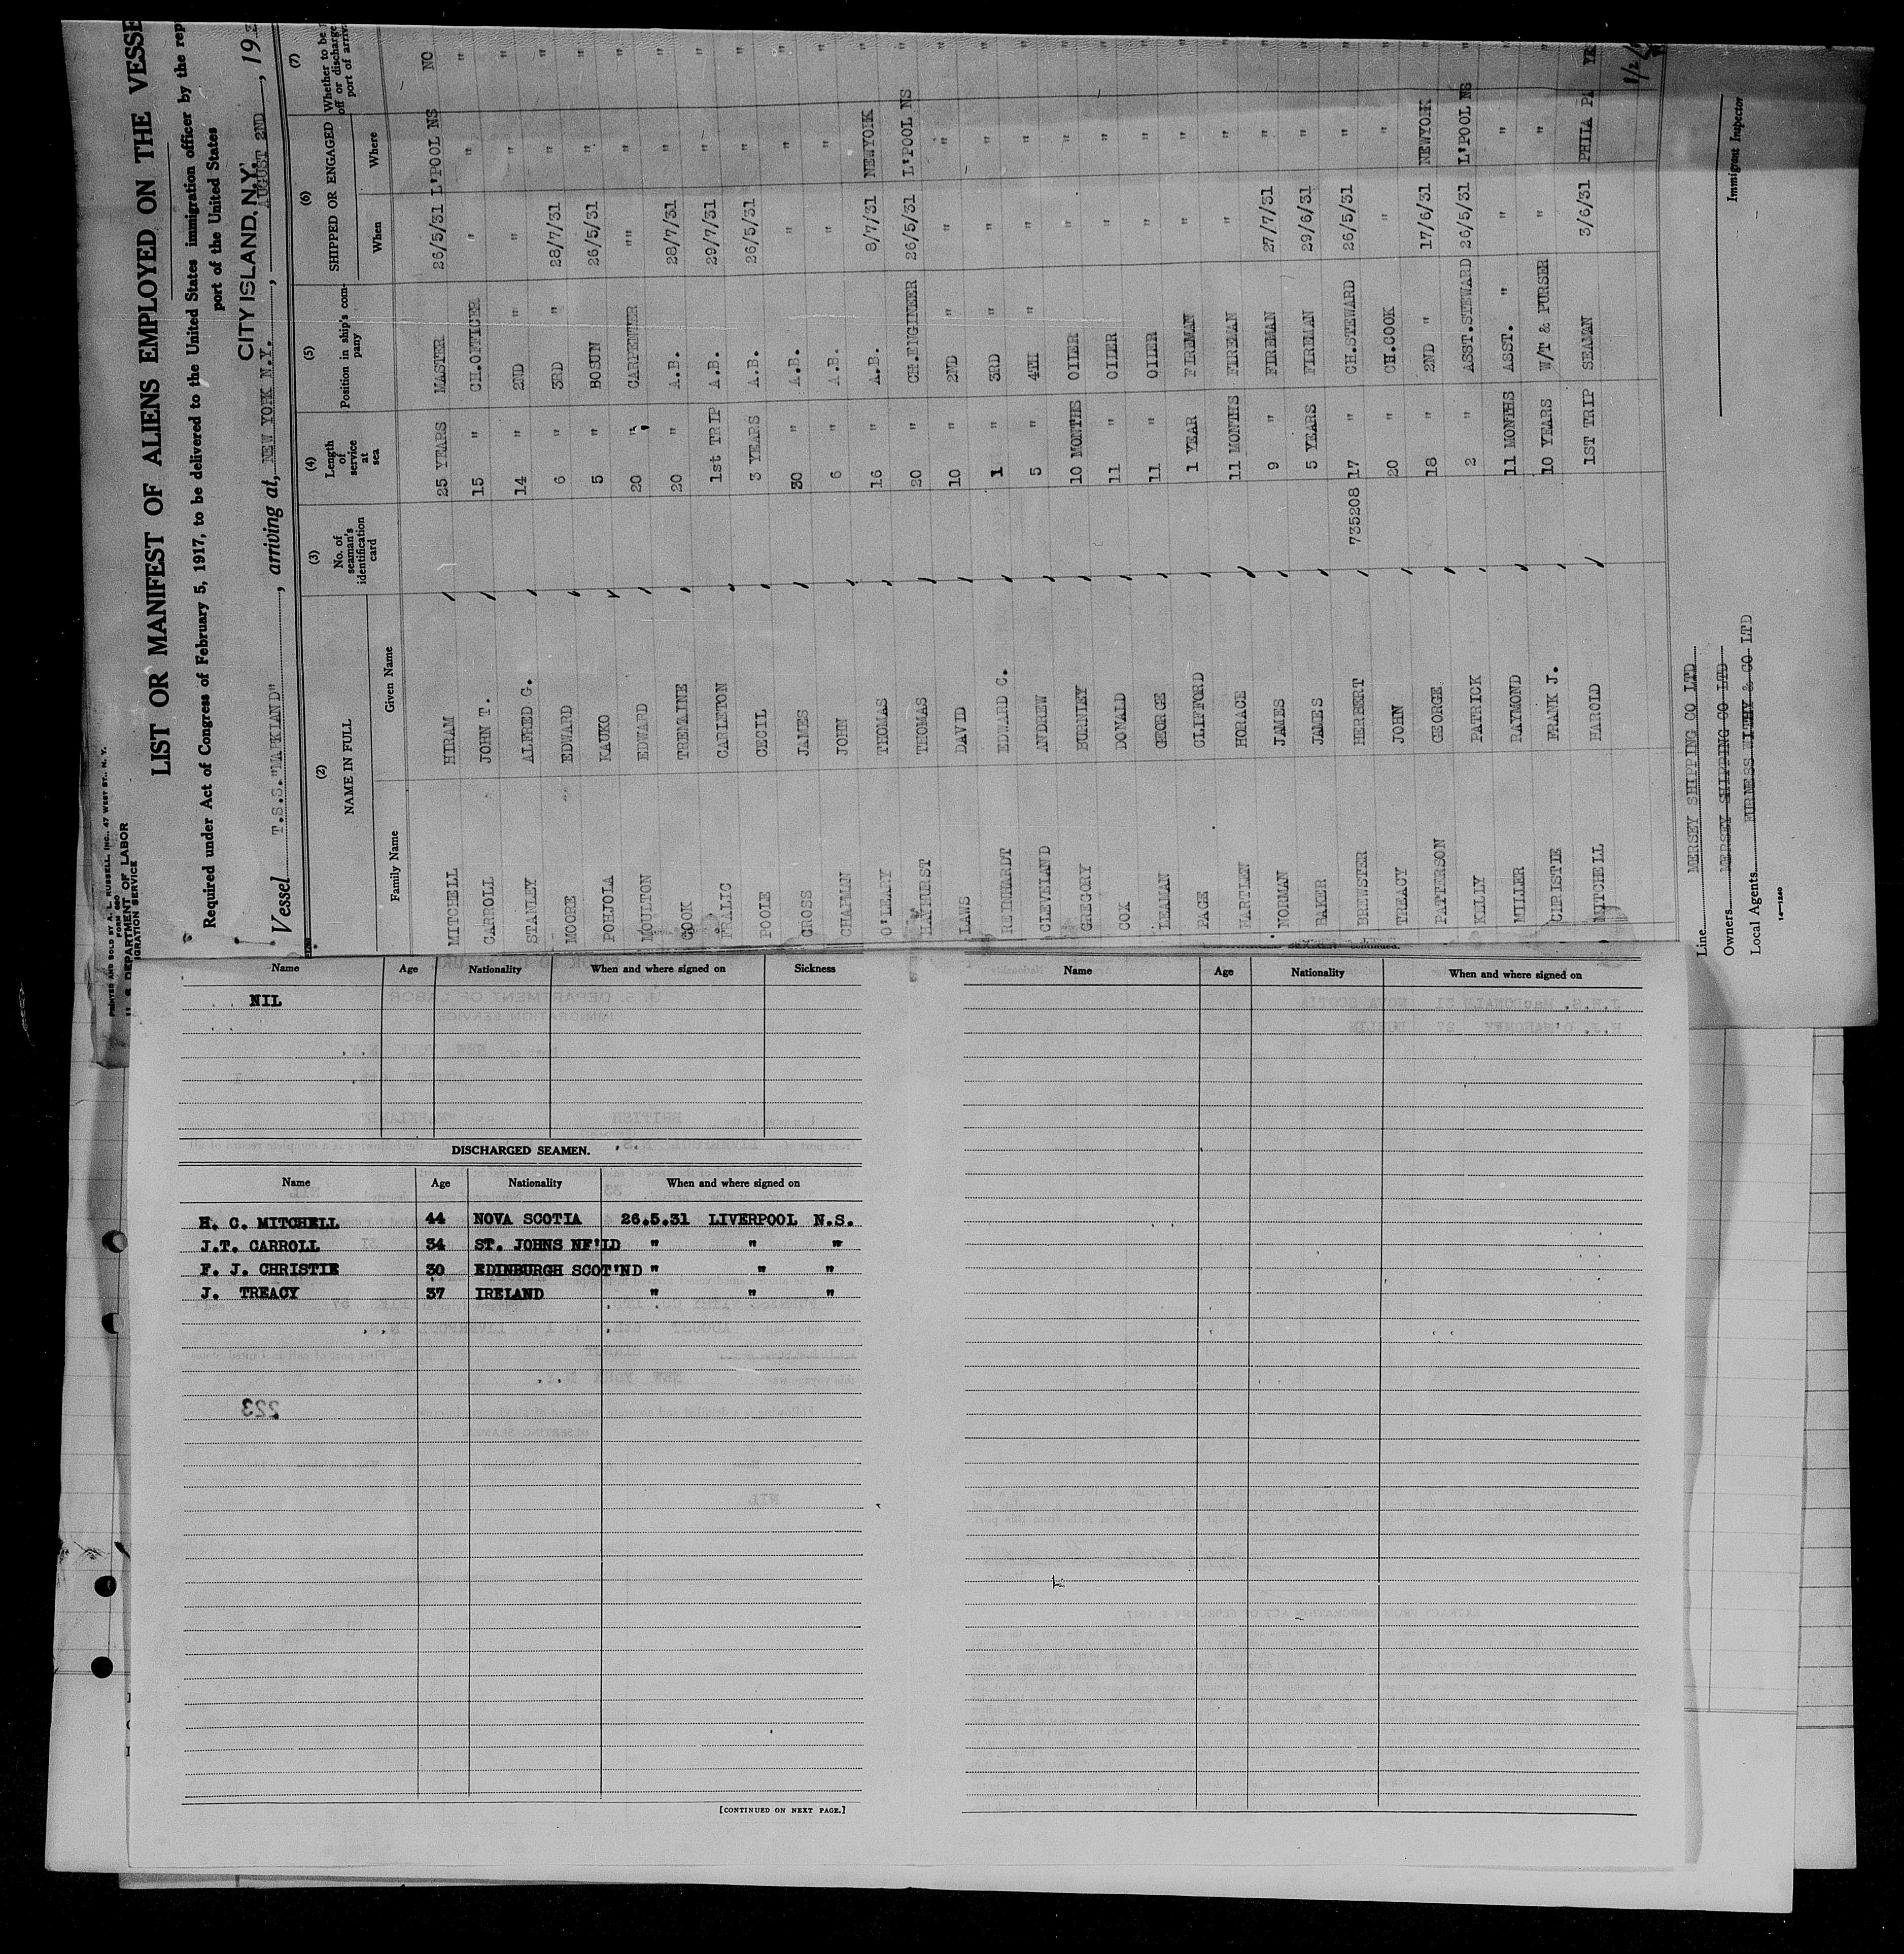 PRINTED AND SOLD BY A. L. RUSSELL, INC., 47 WEST ST., N. Y.
FORM 680
U. S. DEPARTMENT OF LABOR
IGRATION SERVICE
LIST OR MANIFEST OF ALIENS EMPLOYED ON THE VESSE
Required under Act of Congress of February 5, 1917, to be delivered to the United States immigration officer by the rep
port of the United States
CITY ISLAND, N.Y.
Vessel T.S.S."MARKLAND", arriving at, NEW YORK N.Y., AUGUST 2ND, 193
(2) (3) (4) (5) (6) (7)
NAME IN FULL No. of seaman's identification card Length of service at sea Position in ship's company SHIPPED OR ENGAGED Whether to be off or discharge port of arriv
Family Name Given Name When Where
MITCHELL HIRAM 25 YEARS MASTER 26/5/31 L'POOL NS NO
CARROLL JOHN T. 15 " CH.OFFICER " " "
STANLEY ALFRED G. 14 " 2ND " " " "
MOORE EDWARD 6 " 3RD " 28/7/31 " "
POHJOLA KAUKO 5 " BOSUN 26/5/31 " "
MOULTON EDWARD 20 " CARPENTER "" " "
COOK TREMAINE 20 " A.B. 28/7/31 " "
FRALIC CARLETON 1st TRIP A.B. 29/7/31 " "
POOLE CECIL 3 YEARS A.B. 26/5/31 " "
CROSS JAMES 30 " A.B. " " "
CHAPMAN JOHN 6 " A.B. " " "
O'LEARY THOMAS 16 " A.B. 8/7/31 NEWYORK "
HAYHURST THOMAS 20 " CH.ENGINEER 26/5/31 L'POOL NS "
LAWS DAVID 10 " 2ND " " " "
REINHARDT EDWARD C. 1 " 3RD " " " "
CLEVELAND ANDREW 5 " 4TH " " " "
GREGORY BURNLEY 10 MONTHS OILER " " "
COX DONALD 11 " OILER " " "
LEAMAN GEORGE 11 " OILER " " "
PAGE CLIFFORD 1 YEAR FIREMAN " " "
HARTLEN HORACE 11 MONTHS FIREMAN " " "
NORMAN JAMES 9 " FIREMAN 27/7/31 " "
BAKER JAMES 5 YEARS FIREMAN 29/6/31 " "
BREWSTER HERBERT 735208 17 " CH.STEWARD 26/5/31 " "
TREACY JOHN 20 " CH.COOK " " "
PATTERSON GEORGE 18 " 2ND " 17/6/31 NEWYORK "
KELLY PATRICK 2 " ASST.STEWARD 26/5/31 L'POOL NS "
MILLER RAYMOND 11 MONTHS ASST. " " " "
CHRISTIE FRANK J. 10 YEARS W/T & PURSER " " "
MITCHELL HAROLD 1ST TRIP SEAMAN 3/6/31 PHILA PA YE
Line MERSEY SHIPPING CO LTD
Owners MERSEY SHIPPING CO LTD
Local Agents FURNESS WITHY & CO LTD
Immigrant Inspector
Name Age Nationality When and where signed on Sickness
NIL
DISCHARGED SEAMEN.
Name Age Nationality When and where signed on
H. C. MITCHELL 44 NOVA SCOTIA 26.5.31 LIVERPOOL N.S.
J.T. CARROLL 34 ST. JOHNS NF'LD " " "
F. J. CHRISTIE 30 EDINBURGH SCOT'ND " " "
J. TREACY 37 IRELAND " " "
223
[CONTINUED ON NEXT PAGE.]
Name Age Nationality When and where signed on